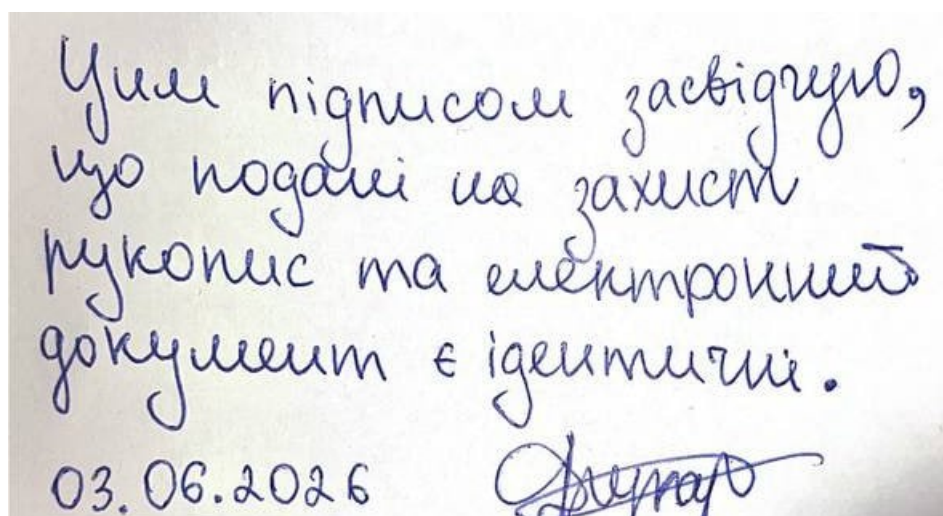 Цим підписом засвідчую,
що подані на захист
рукопис та електронний
документ є ідентичні.
03.06.2026